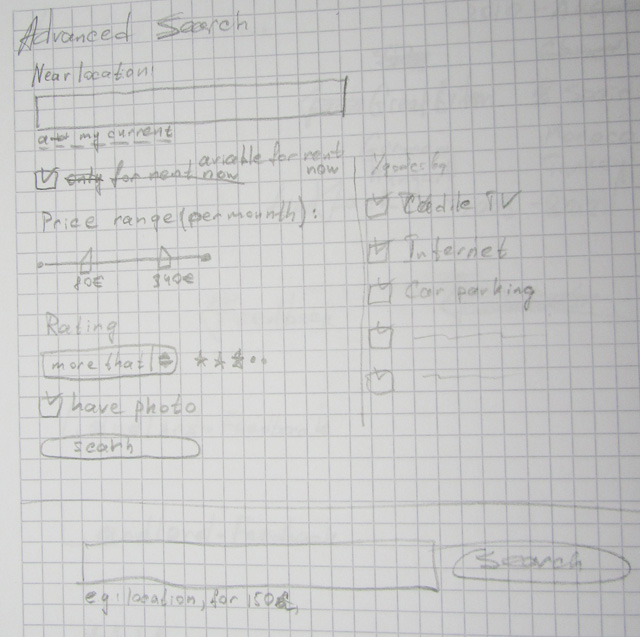 Advanced Search
Near location:
my current
only for rent now
ariable for rent
now
Price range (per mounth):
80€
340€
Rating
more that
have photo
searh
Cadile TV
Internet
Car parking
Search
eg: location, for 150€,